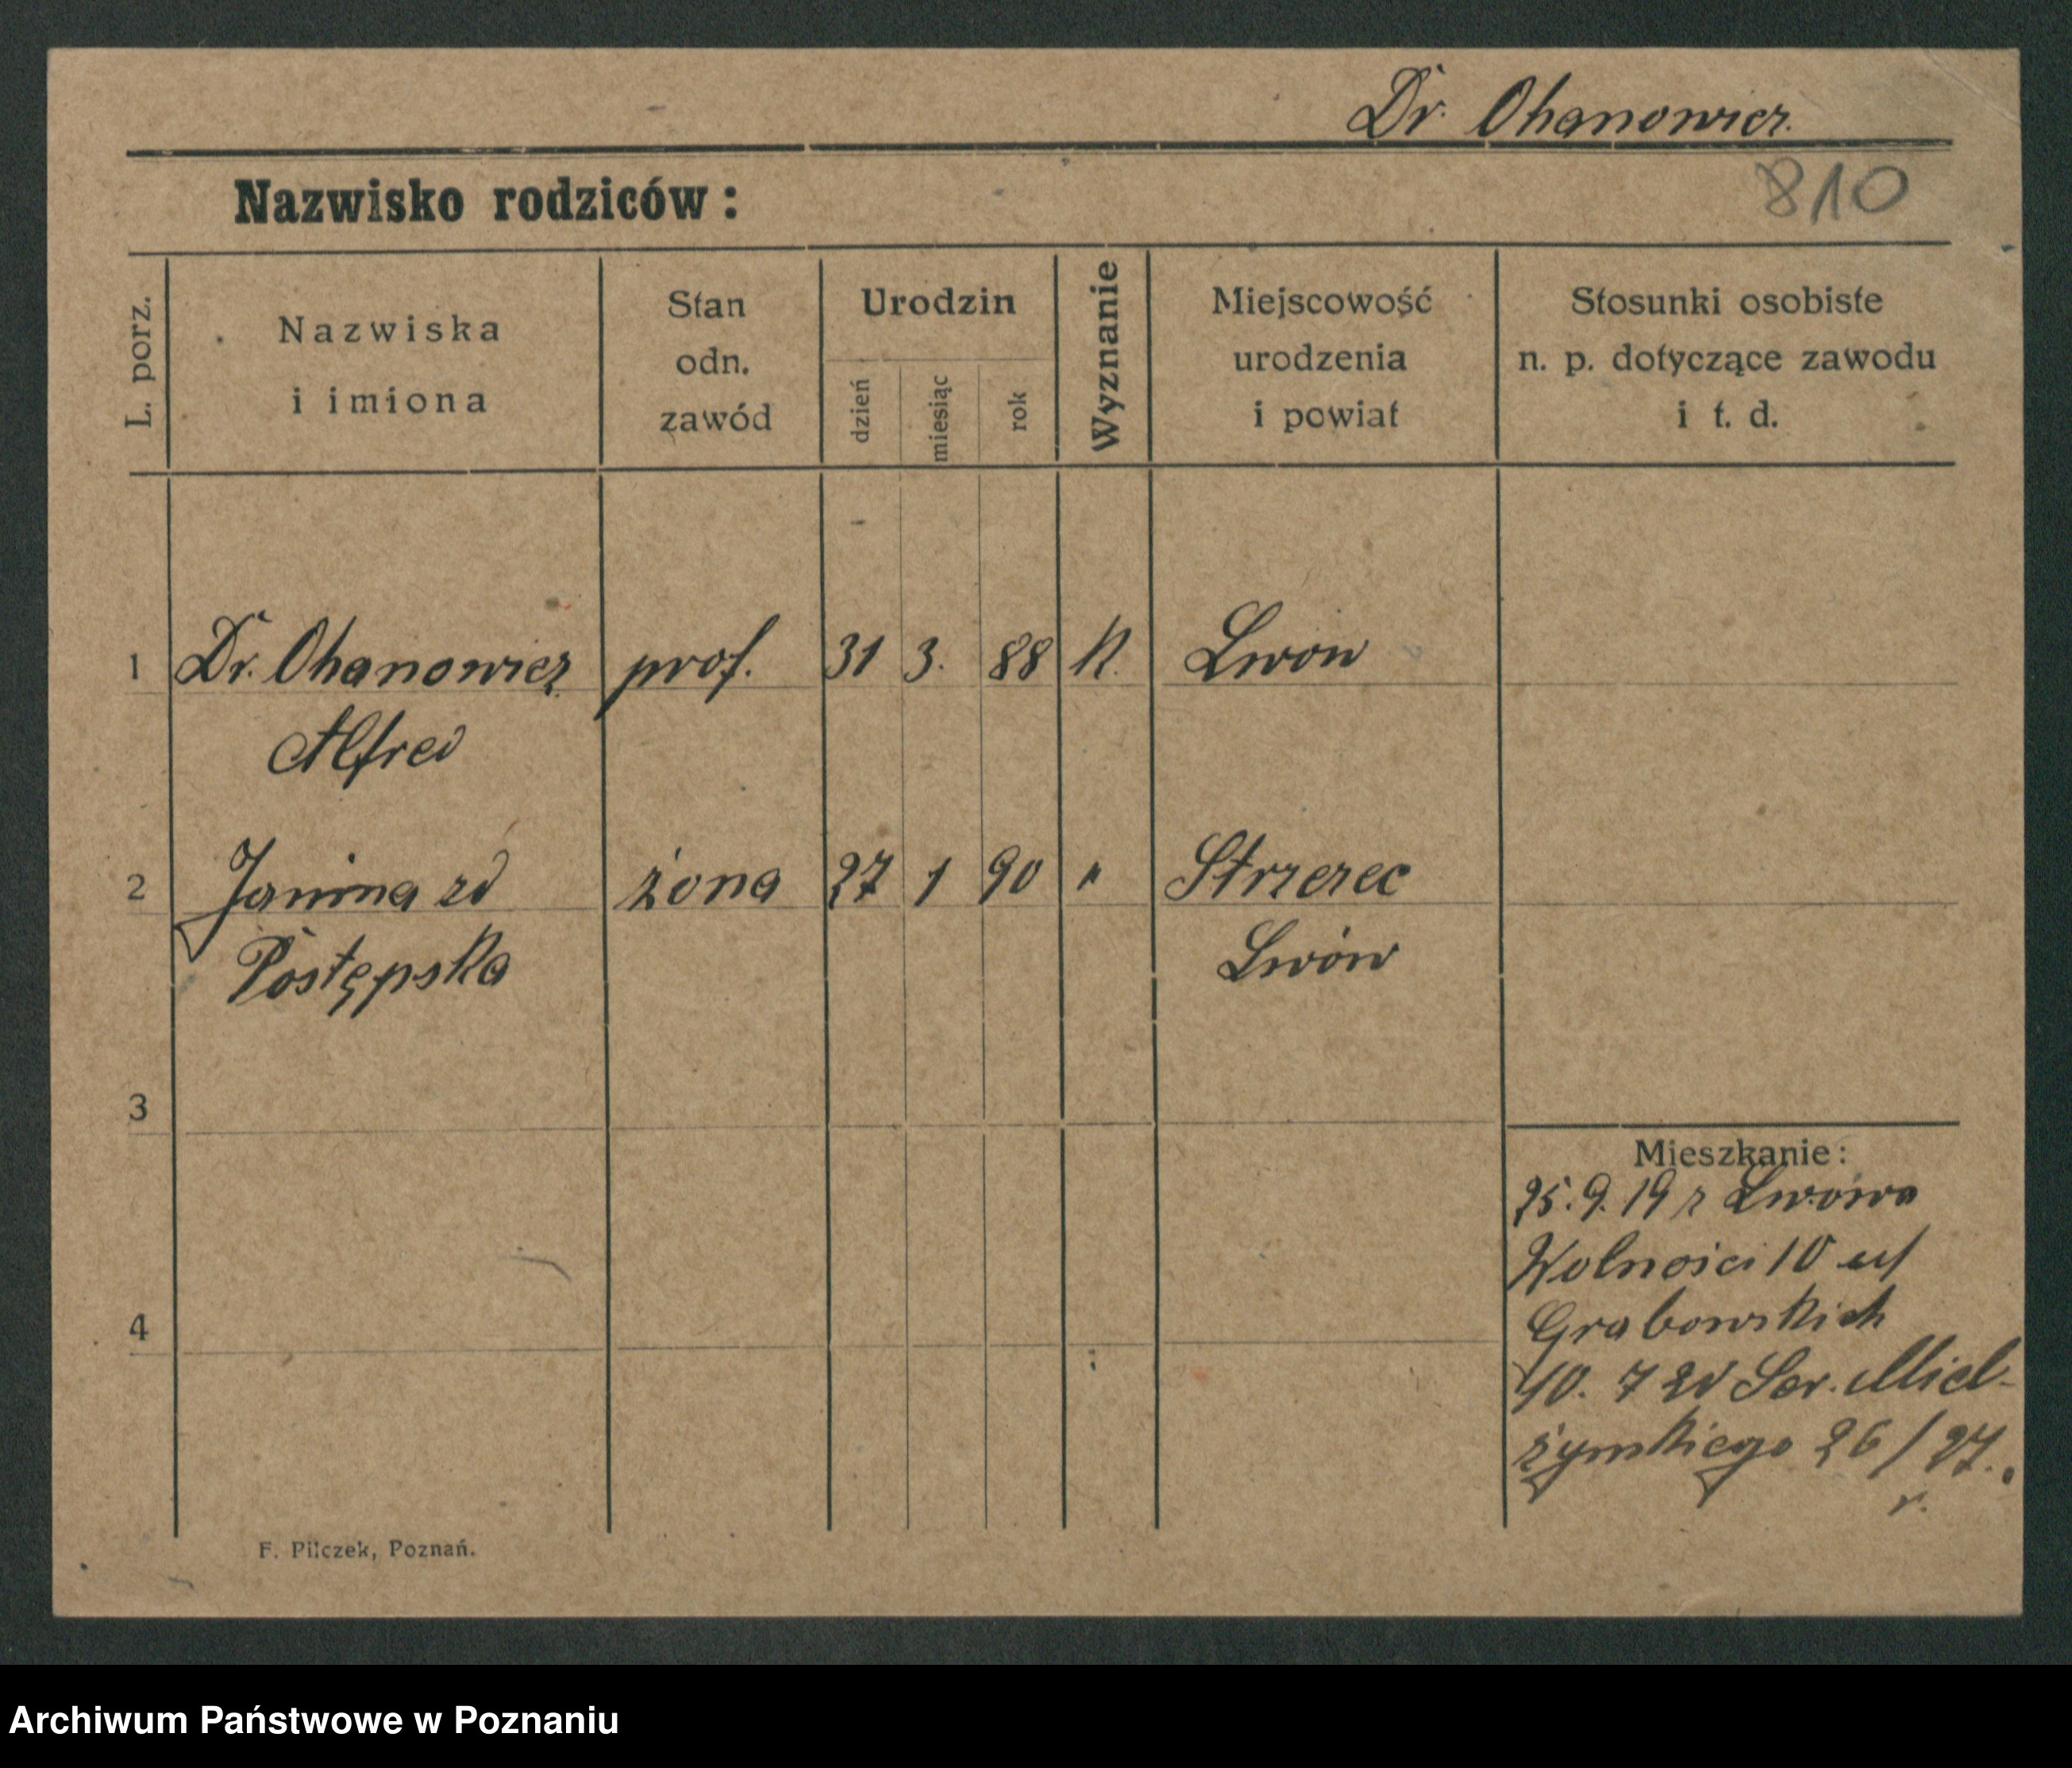 Dr. Ohanowicz.
Nazwisko rodziców:
810
L. porz.
Nazwiska
i imiona
Stan
odn.
zawód
Urodzin
dzień
miesiąc
rok
Wyznanie
Miejscowość
urodzenia
i powiat
Stosunki osobiste
n. p. dotyczące zawodu
i t. d.
1 Dr. Ohanowicz prof. 31 3. 88 K. Lwow
Alfred
2 Janina zd żona 27 1 90 " Strzezec
Postępska Lwów
3
Mieszkanie:
25.9.19 z Lwowa
Wolności 10 u/
4
Grabowskich
10. 7 20 Sew. Miel-
żyńskiego 26/27.
r.
F. Pilczek, Poznań.
Archiwum Państwowe w Poznaniu